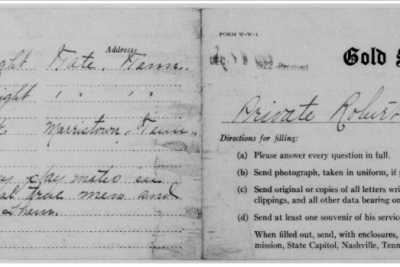 Address:
Tate, Tenn.
" "
Morristown, Tenn.
true men and
them.
FORM W-W-1
1922 Received
Gold S
Private Robert
Directions for filling:
(a) Please answer every question in full.
(b) Send photograph, taken in uniform, if p
(c) Send original or copies of all letters writ
clippings, and all other data bearing on
(d) Send at least one souvenir of his service
When filled out, send, with enclosures,
mission, State Capitol, Nashville, Tenn